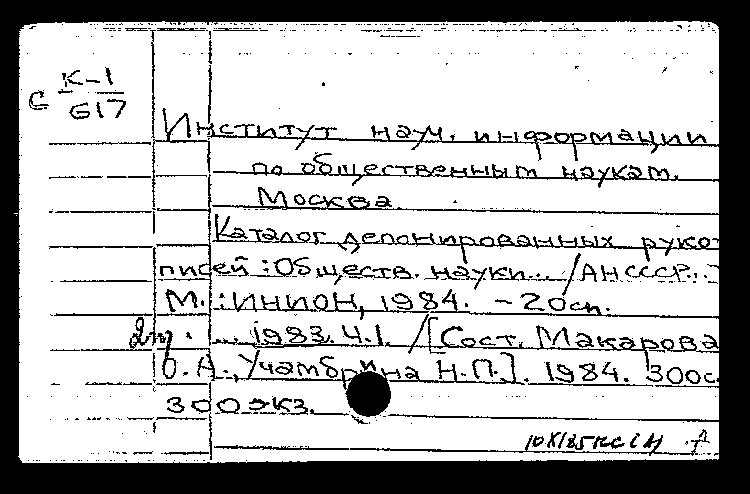 К-1
С 617
Институт науч. информации
по общественным наукам.
Москва.
Каталог депонированных руко-
писей: Обществ. науки... /АНСССР...
М.: ИНИОН, 1984. - 20см.
... 1983. Ч.1. /[Сост. Макарова
О.А., Учамбрина Н.П.]. 1984. 300с.
300экз.